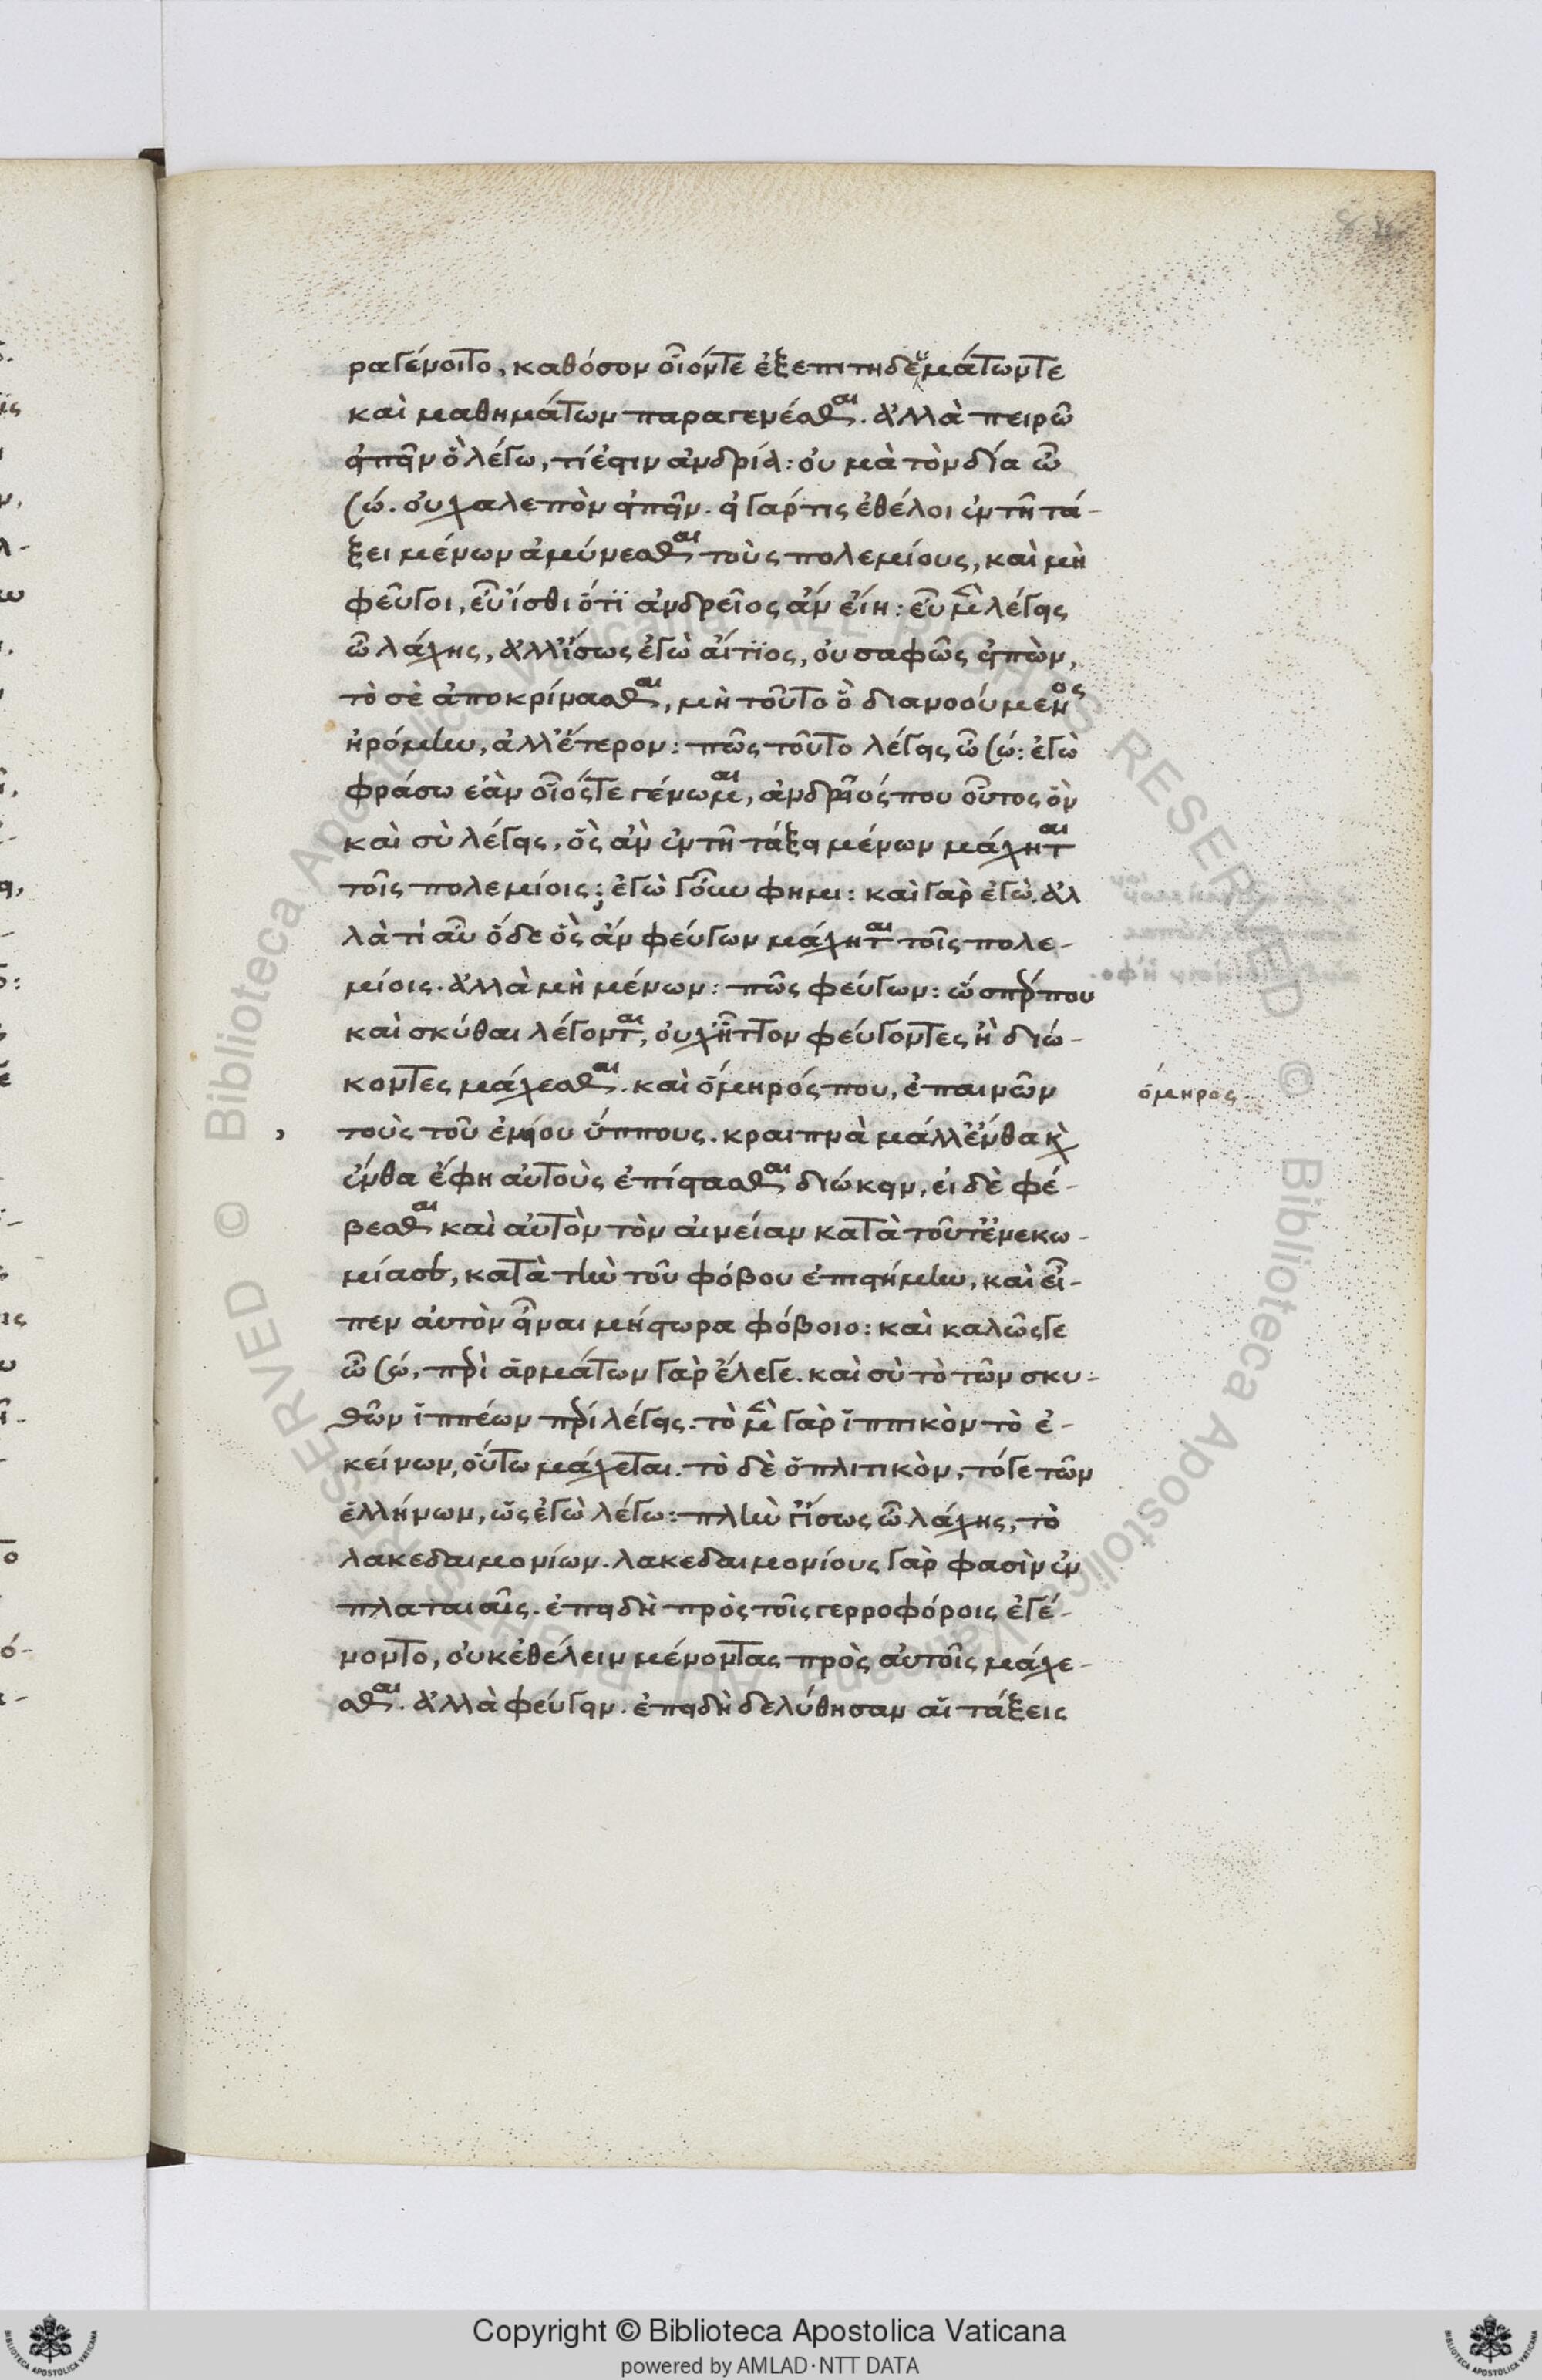 ραγένοιτο, καθόσον οἷόντε ἐξεπιτηδευμάτωντε
καὶ μαθημάτων παραγενέσθαι. ἀλλὰ πειρῶ
εἰπεῖν ὃ λέγω, τί ἐστιν ἀνδρία: οὐ μὰ τὸν δία ὦ
σώ. οὐ χαλεπὸν εἰπεῖν. εἰ γάρ τις ἐθέλοι ἐν τῆ τά-
ξει μένων ἀμύνεσθαι τοὺς πολεμίους, καὶ μὴ
φεῦγοι, εὖ ἴσθι ὅτϊ ἀνδρεῖος ἂν εἴη: εὖ μὲν λέγεις
ὦ λάχης, ἀλλ' ἴσως ἐγὼ αἴτϊος, οὐ σαφῶς εἰπὼν,
τὸ σὲ ἀποκρίνασθαι, μὴ τοῦτο ὃ διανοούμενος
ἠρόμην, ἀλλ' ἕτερον: πῶς τοῦτο λέγεις ὦ σώ: ἐγὼ
φράσω ἐὰν οἷόςτε γένωμαι, ἀνδρεῖός που οὗτος ὃν
καὶ σὺ λέγεις, ὃς ἂν ἐν τῆ τάξει μένων μάχηται
τοῖς πολεμίοις; ἐγὼ γοῦν φημι: καὶ γὰρ ἐγὼ. ἀλ
λὰ τί αὖ ὅδε ὃς ἂν φεύγων μάχηται τοῖς πολε-
μίοις. ἀλλὰ μὴ μένων: πῶς φεύγων: ὥσπερ που
καὶ σκύθαι λέγονται, οὐχ ἧττον φεύγοντες ἢ διώ-
κοντες μάχεσθαι. καὶ ὅμηρός που, ἐπαινῶν
τοὺς τοῦ ἐνείου ἵππους. κραιπνὰ μάλλ' ἔνθα κὶ
ἔνθα ἔφη αὐτοὺς ἐπίστασθαι διώκειν, εἰ δὲ φέ-
βεσθαι καὶ αὐτὸν τὸν αἰνείαν κατὰ τοῦτ' ἐνεκω-
μίασε, κατὰ τὴν τοῦ φόβου ἐπιστήμην, καὶ εἶ-
πεν αὐτὸν εἶναι μήστωρα φόβοιο: καὶ καλῶςγε
ὦ σώ, περὶ ἁρμάτων γὰρ ἔλεγε. καὶ σὺ τὸ τῶν σκυ-
θῶν ἱππέων πέρι λέγεις. τὸ μὲν γὰρ ἱππικὸν τὸ ἐ-
κείνων, οὕτω μάχεται. τὸ δὲ ὁπλιτικὸν, τόγε τῶν
ἑλλήνων, ὡς ἐγὼ λέγω: πλὴν γ' ἴσως ὦ λάχης, τὸ
λακεδαιμονίων. λακεδαιμονίους γὰρ φασὶν ἐν
πλαταιαῖς. ἐπειδὴ πρὸς τοῖς γερροφόροις ἐγέ-
νοντο, οὐκ ἐθέλειν μένοντας πρὸς αὐτοῖς μάχε-
σθαι. ἀλλὰ φεύγειν. ἐπειδὴ δ' ἐλύθησαν αἱ τάξεις
ὅμηρος
Copyright © Biblioteca Apostolica Vaticana
powered by AMLAD·NTT DATA